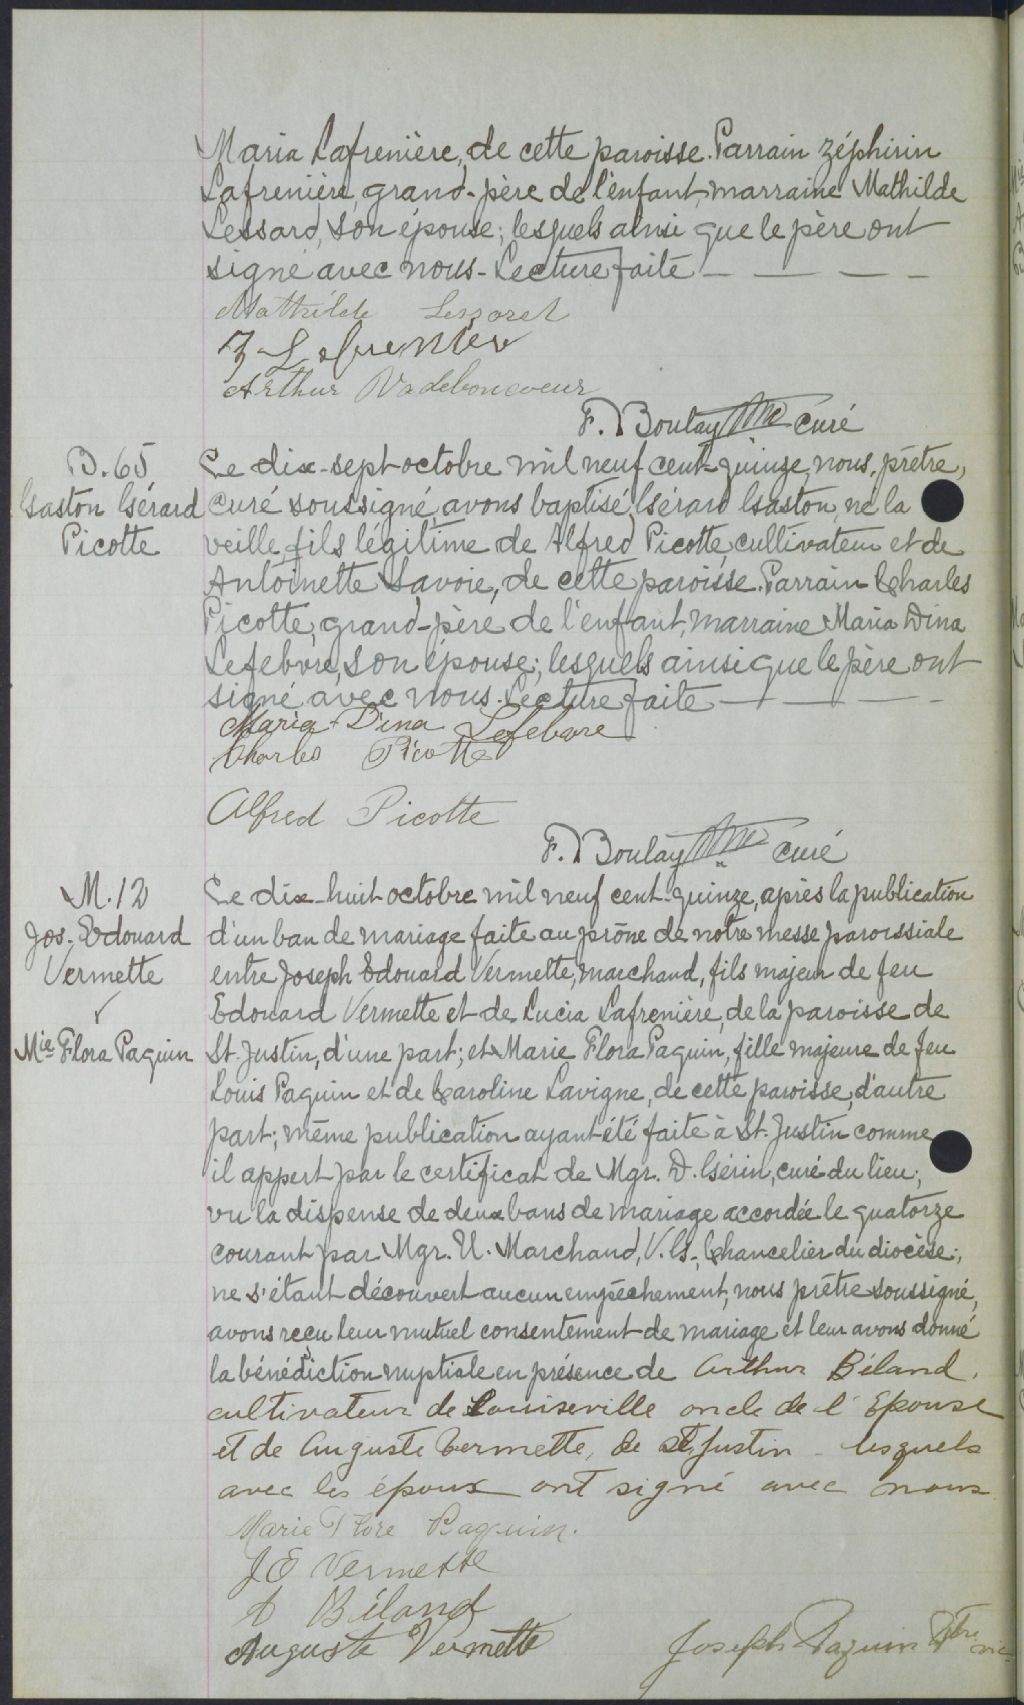 Maria Lafrenière, de cette paroisse. Parrain Zéphirin
Lafrenière, grand-père de l'enfant, marraine Mathilde
Lessard, son épouse; lesquels ainsi que le père ont
signé avec nous. Lecture faite — — — —
Mathilde Lessard
Z Lafrenière
Arthur Vadeboncoeur
F. Boulay Ptre curé
B. 65
Gaston Gérard
Picotte
Le dix-sept octobre mil neuf cent-quinze, nous, prêtre,
curé soussigné, avons baptisé, Gérard Gaston, né la
veille, fils légitime de Alfred Picotte, cultivateur et de
Antoinette Savoie, de cette paroisse. Parrain Charles
Picotte, grand-père de l'enfant, marraine Maria Dina
Lefebvre, son épouse; lesquels ainsi que le père ont
signé avec nous. Lecture faite — — — —
Maria-Dina Lefebvre
Charles Picotte
Alfred Picotte
F. Boulay Ptre curé
M. 12
Jos. Edouard
Vermette
✓
Mie Flora Paquin
Le dix-huit octobre mil neuf cent-quinze, après la publication
d'un ban de mariage faite au prône de notre messe paroissiale
entre Joseph Edouard Vermette, marchand, fils majeur de feu
Edouard Vermette et de Lucia Lafrenière, de la paroisse de
St. Justin, d'une part; et Marie Flora Paquin, fille majeure de feu
Louis Paquin et de Caroline Lavigne, de cette paroisse, d'autre
part; même publication ayant été faite à St. Justin comme
il appert par le certificat de Mgr. D. Gérin, curé du lieu;
vu la dispense de deux bans de mariage accordée le quatorze
courant par Mgr. U. Marchand, V.G., Chancelier du diocèse;
ne s'étant découvert aucun empêchement, nous prêtre soussigné,
avons reçu leur mutuel consentement de mariage et leur avons donné
la bénédiction nuptiale en présence de Arthur Béland,
cultivateur de Louiseville oncle de l'Epouse
et de Auguste Vermette, de St. Justin - lesquels
avec les époux ont signé avec nous.
Marie Flore Paquin.
J E Vermette
A Béland
Auguste Vermette
Joseph Paquin Ptre vic.